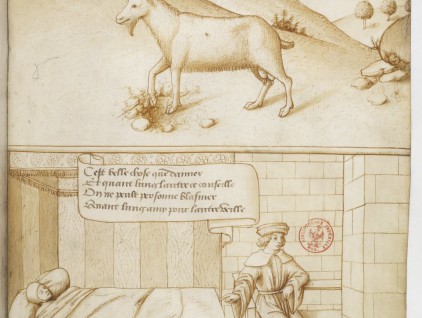 Cest belle chose que damer
Et quant lung lautre se conseille
On ne peult personne blasmer
Quant lung amy pour lautre veille